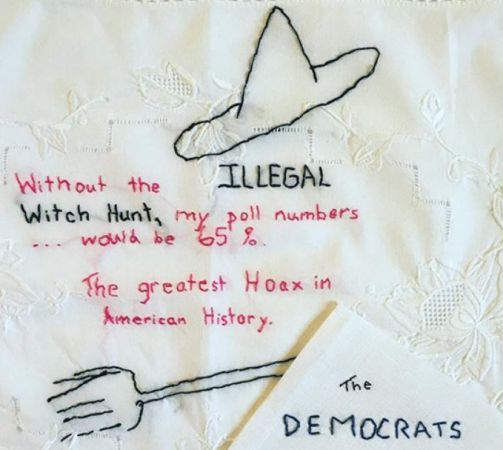 ILLEGAL
Without the
Witch Hunt, my poll numbers
... would be 65 %.
The greatest Hoax in
American History.
The
DEMOCRATS